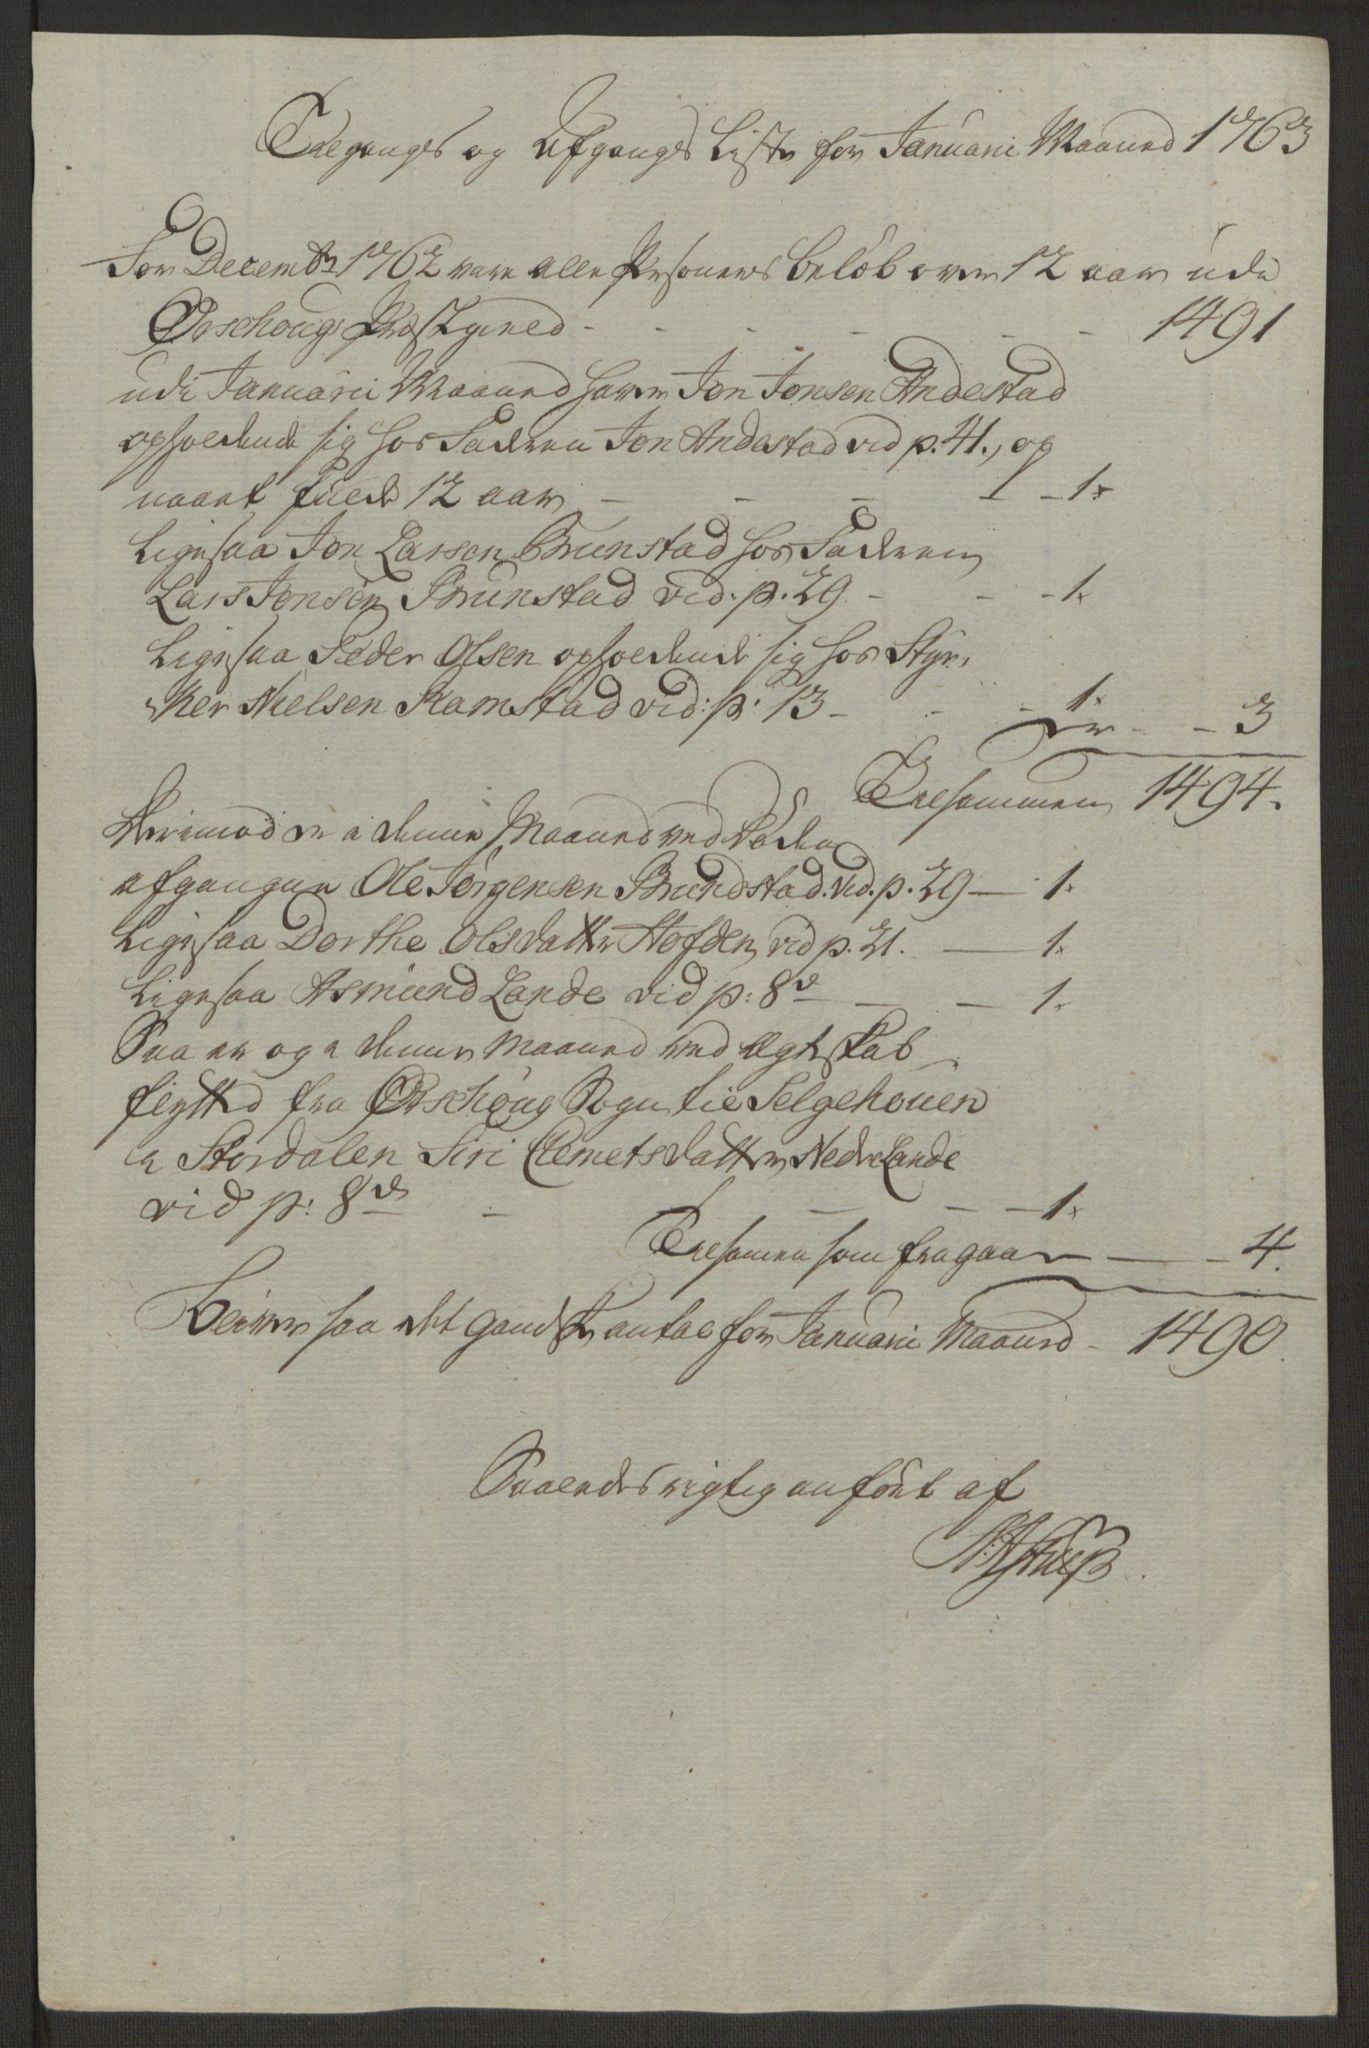 Tilgangs og Afgangs Liste for Januarii Maaned 1763
For Decembr 1762 vare alle Personers beløb over 12 aar udi
Ørschougs Præstgield - - - - - 1491
udi Januarii Maaned haver Jon Jonsen Andestad
opholdende sig hos Faderen Jon Andestad vid p. 41., og
naaet fulde 12 aar - - - - - 1.
Ligesaa Jon Larsen Brunstad hos Faderen
Lars Jonsen Brunstad vid. p. 29 - - - 1.
Ligesaa Peder Olsen opholdende sig hos Styr-
ker Nielsen Ramstad vid: p: 13 - - - 1.
er - - 3
Tilsammen 1494.
Herimod er i denne Maaned ved Døden
afgangen Ole Jørgensen Brundstad. vid. p. 29 - 1.
Ligesaa Dorthe Olsdatter Hofden vid p. 21. - 1.
Ligesaa Asmund Lande vid p: 8de - - 1.
Saa er og i denne Maaned ved Ægteskab
flytted fra Ørschoug Sogn til Selgehouen
i Stordalen Siri Clemetsdatter Nedre Lande
vid p: 8de - - - - 1.
Tilsamen som fragaar - - 4.
Bliver saa det gandske antal for Januarii Maaned - 1490.
Saaledes rigtig anført af